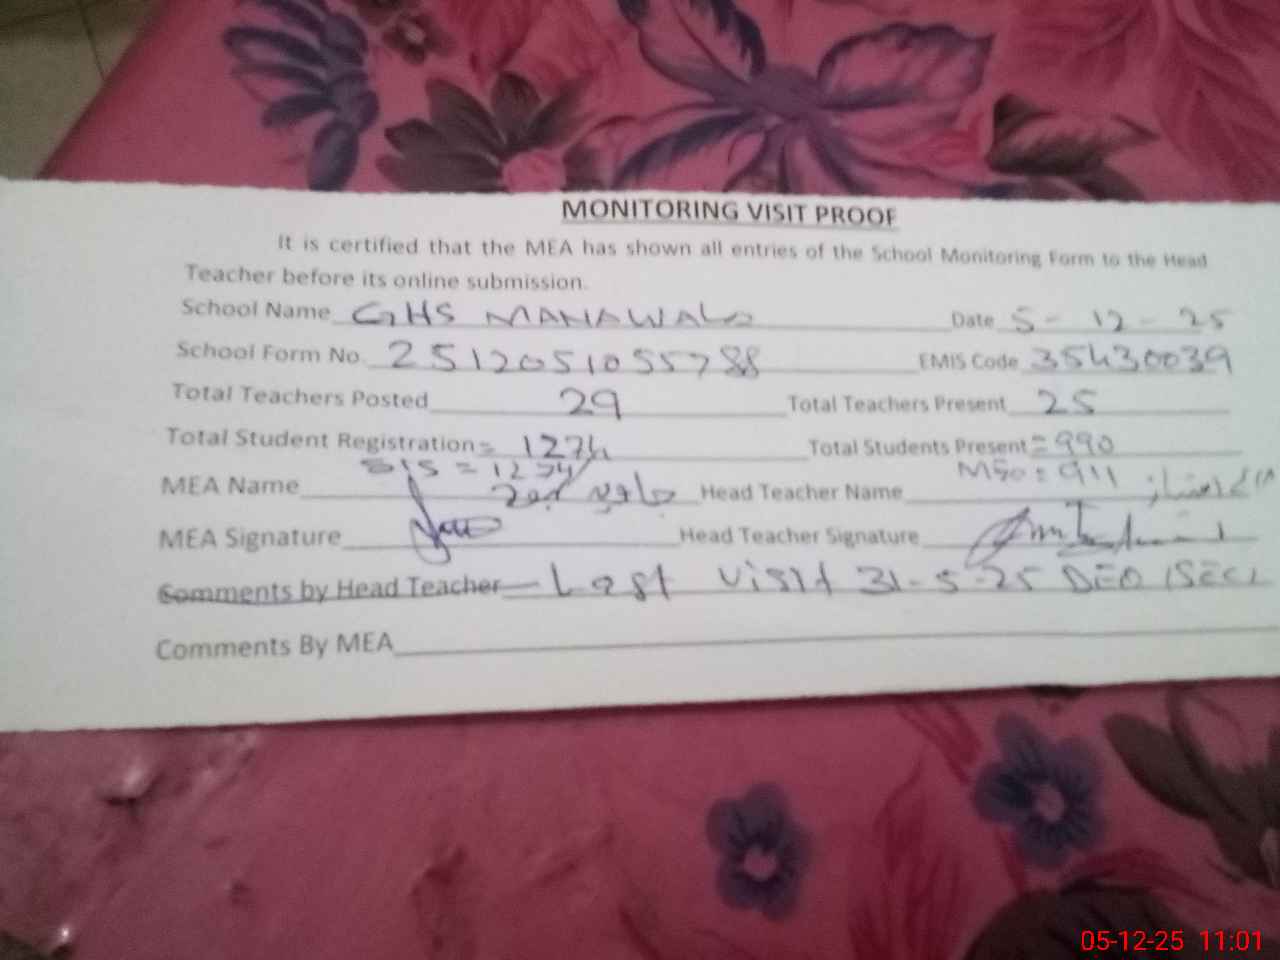 MONITORING VISIT PROOF
It is certified that the MEA has shown all entries of the School Monitoring Form to the Head
Teacher before its online submission.
School Name GHS MANAWALA Date 5-12-25
School Form No. 2512051055788 EMIS Code 35430039
Total Teachers Posted 29 Total Teachers Present 25
Total Student Registration = 1274 Total Students Present = 990
SIS = 1274
MEA Name Head Teacher Name
MEA Signature Head Teacher Signature
Comments by Head Teacher Last visit 31-5-25 DEO (SEC)
Comments By MEA
05-12-25 11:01